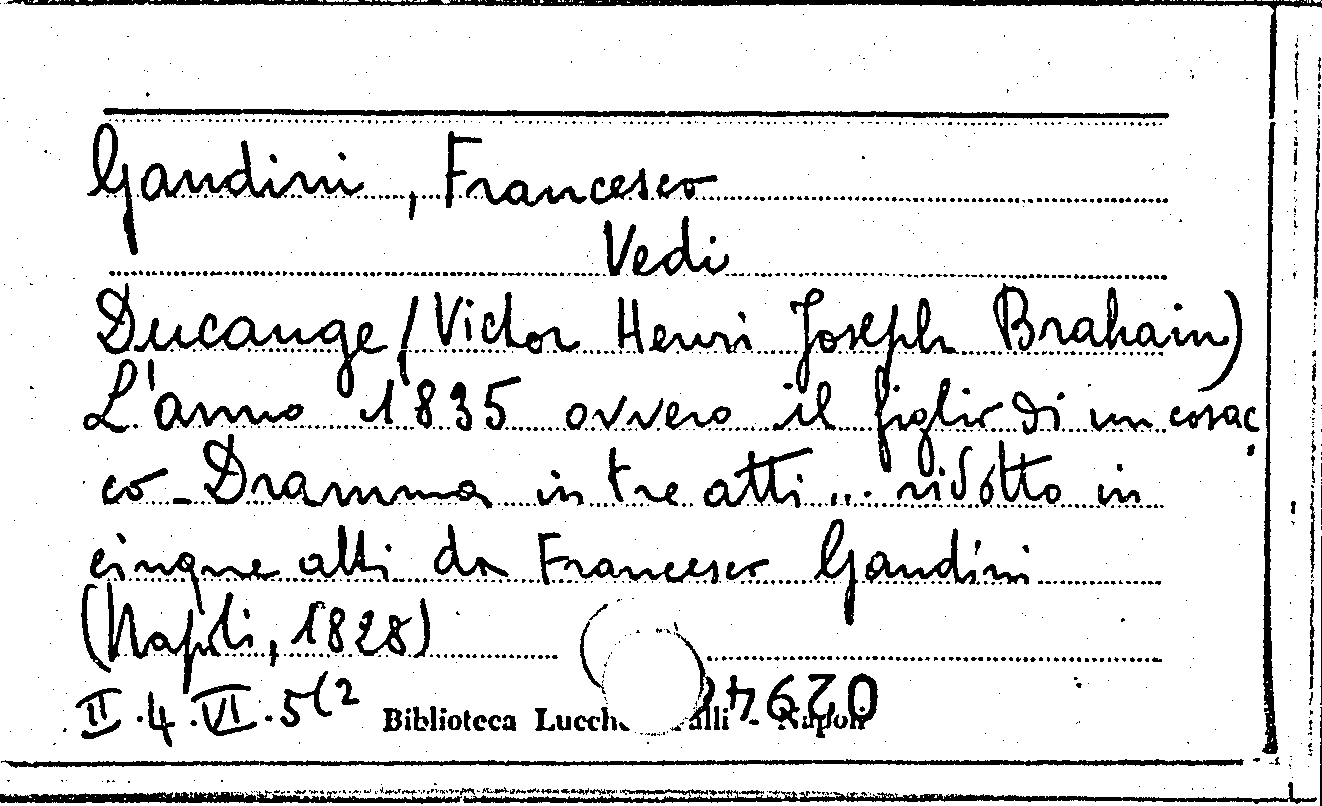 Gandini, Francesco
Vedi
Ducange (Victor Henri Joseph Brahain)
L'anno 1835 ovvero il figlio di un cosac
co - Dramma in tre atti ... ridotto in
cinque atti da Francesco Gandini
(Napoli, 1828)
II.4.VI.5(2
Biblioteca - Napoli